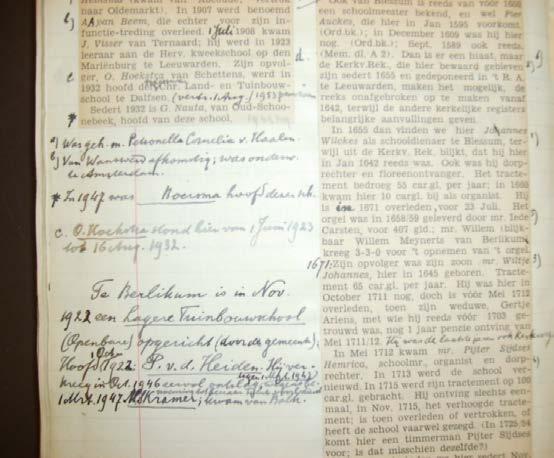 Oldemarkt). In 1907 werd benoemd
A. van Beem, die echter voor zijn in-
functie-treding overleed. 1 Juli 1908 kwam
J. Visser van Ternaard; hij werd in 1923
leeraar aan de Herv. kweekschool op den
Marienburg te Leeuwarden. Zijn opvol-
ger, O. Hoekstra van Schettens, werd in
1932 hoofd der Chr. Land- en Tuinbouw-
school te Dalfsen.
Sedert 1932 is G. Nauta, van Oud-Schoo-
nebeek, hoofd van deze school.
a) Was geh. m. Petronella Cornelia v. Haalen
b) Van Wanswerd afkomstig; was onderw.
te Amsterdam.
* In 1947 was Boersma hoofd dezer sch.
c. O. Hoekstra stond hier van 1 Juni 1923
tot 16 Aug. 1932.
Te Berlikum is in Nov.
1922 een Lagere Tuinbouwschool
(Openbare) opgericht (door de gemeente).
Hoofd 1922 P. v. d. Heiden. Hij ver-
kreeg in Oct. 1946 eervol ontslag
1 Mrt. 1947 Kramer; kwam van Balk.
Ook van Blessum is reeds van
een schoolmeester bekend, en wel Pier
Auckes, die hier in Jan. 1595 voorkomt
(Ord.bk.); in December 1609 was hij hier
nog. (Ord.bk.; Sept. 1589 ook reeds.
(Mem. dl. A 2). Dan is er een hiaat, maar
de Kerkv.Rek., die hier bewaard gebleven
zijn sedert 1655 en gedeponeerd in 't R. A.
te Leeuwarden, maken het mogelijk, de
reeks onafgebroken op te maken vanaf
1642, terwijl de andere kerkelijke registers
belangrijke aanvullingen geven.
In 1655 dan vinden we hier Johannes
Wilckes als schooldienaer te Blessum, ter-
wijl uit de Kerkv. Rek. blijkt, dat hij hier
in Jan 1642 reeds was. Ook was hij dorp-
rechter en floreenontvanger. Het tracte-
ment bedroeg 55 car.gl. per jaar; in 1660
kwam hier 10 car.gl. bij als organist. Hij
is in 1671 overleden, voor 23 Juli. Het
orgel was in 1658/59 geleverd door mr. Iede
Carsten, voor 407 gld.; mr. Willem (blijk-
baar Willem Meynerts van Berlikum)
kreeg 3-3-0 voor 't opnemen van 't orgel.
1671: Zijn opvolger was zijn zoon mr. Wiltje
Johannes, hier in 1645 geboren. Tracte-
ment 65 car.gl. per jaar. Hij was hier in
October 1711 nog, doch is vóór Mei 1712
overleden, toen zijn weduwe, Gertje
Ariens, met wie hij reeds vóór 1703 ge-
trouwd was, nog 1 jaar pensie ontving van
Mei 1711/12.
In Mei 1712 kwam mr. Pijter Sijdses
Henrica, schoolmr., organist en dorp-
rechter. In 1713 werd de school ver-
nieuwd. In 1715 werd zijn tractement op 100
car.gl. gebracht. Hij ontving slechts een-
maal, in Nov. 1715, het verhoogde tracte-
ment; is toen overleden of vertrokken, of
heeft de school vaarwel gezegd. (In 1725/34
komt hier een timmerman Pijter Sijdses
voor; is dat misschien dezelfde?)